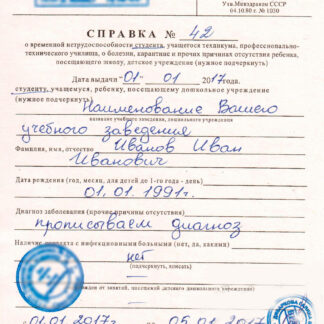 Утв. Минздравом СССР
04.10.80 г. № 1030
СПРАВКА № 42
о временной нетрудоспособности студента, учащегося техникума, профессионально-
технического училища, о болезни, карантине и прочих причинах отсутствия ребенка,
посещающего школу, детское учреждение (нужное подчеркнуть)
Дата выдачи «01» 01 2017г.
студенту, учащемуся, ребенку, посещающему дошкольное учреждение
(нужное подчеркнуть) Наименование Вашего
название учебного заведения, дошкольного учреждения
учебного заведения
Фамилия, имя, отчество Иванов Иван
Иванович
Дата рождения (год, месяц, для детей до 1-го года - день)
01.01.1991г.
Диагноз заболевания (прочие причины отсутствия)
прописываем диагноз
Наличие контакта с инфекционными больными (нет, да, каких)
нет
(подчеркнуть, вписать)
от занятий, посещений детского дошкольного учреждения
01.01 2017г. 05.01.2017